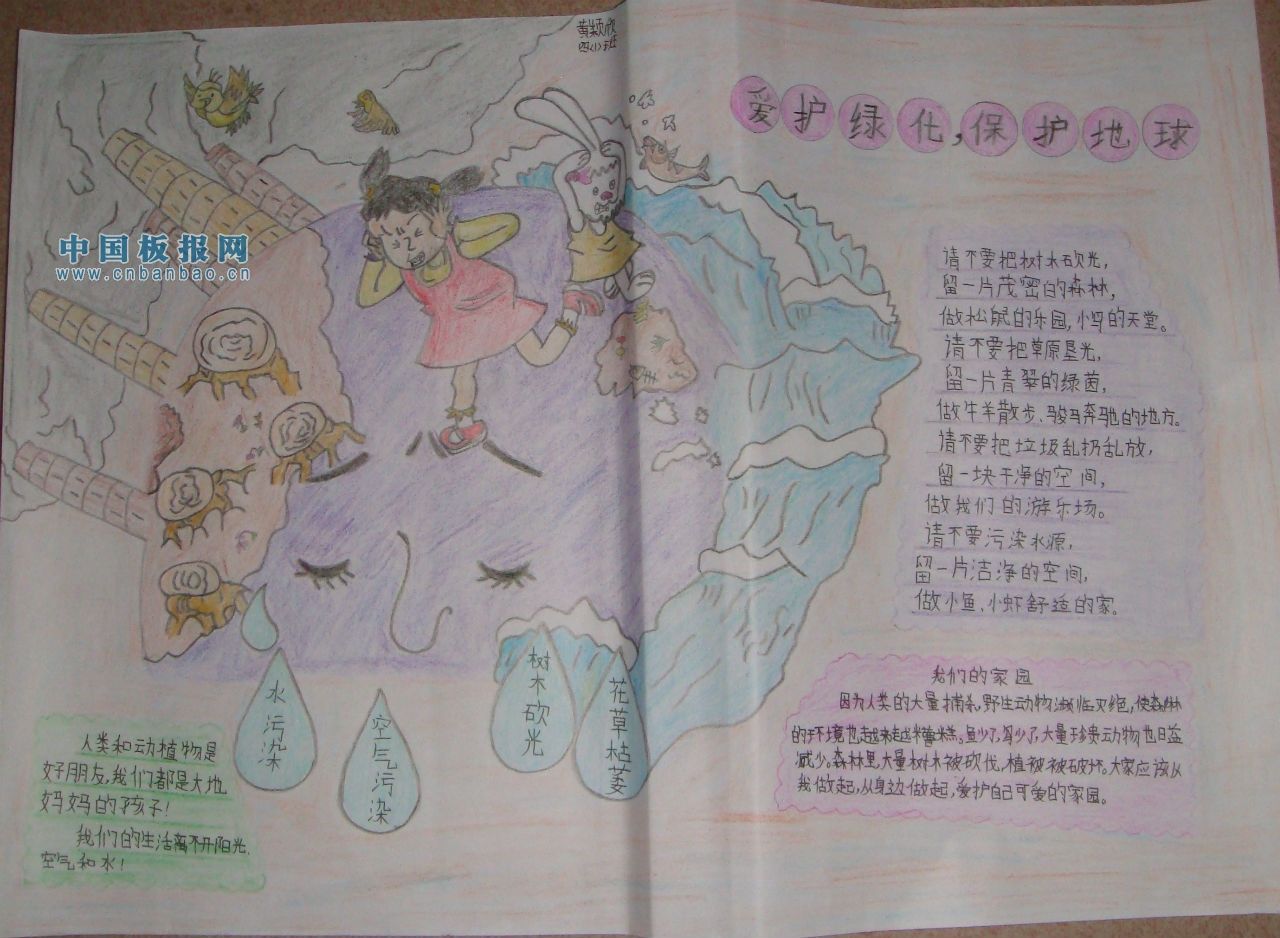 黄颖欣
四(1)班
爱护绿化,保护地球
中国板报网
www.cnbanbao.cn
请不要把树木砍光,
留一片茂密的森林,
做松鼠的乐园,小鸟的天堂。
请不要把草原垦光,
留一片青翠的绿茵,
做牛羊散步、骏马奔驰的地方。
请不要把垃圾乱扔乱放,
留一块干净的空间,
做我们的游乐场。
请不要污染水源,
留一片洁净的空间,
做小鱼、小虾舒适的家。
水污染
空气污染
树木砍光
花草枯萎
我们的家园
因为人类的大量捕杀,野生动物濒临灭绝,使森林
的环境也越来越糟糕。鱼少了,鸟少了,大量珍贵动物也日益
减少。森林里,大量树木被砍伐,植被被破坏。大家应该从
我做起,从身边做起,爱护自己可爱的家园。
人类和动植物是
好朋友,我们都是大地
妈妈的孩子!
我们的生活离不开阳光、
空气和水!